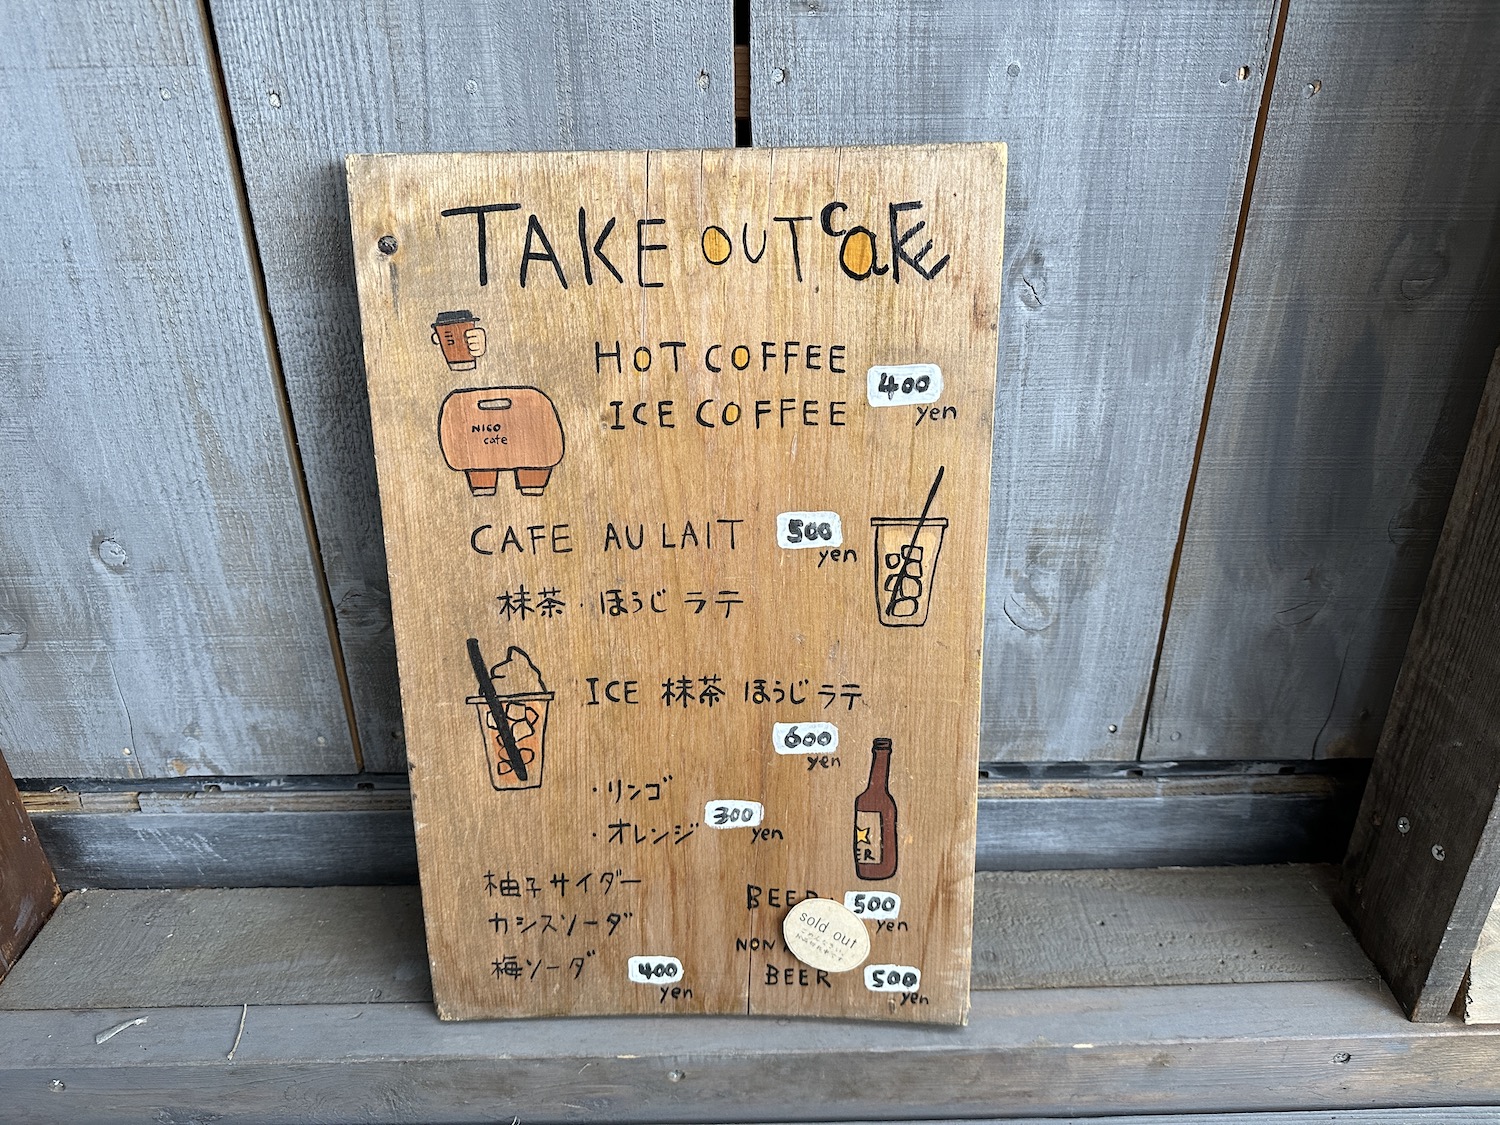 TAKE OUT CAFE
HOT COFFEE
ICE COFFEE
400
yen
NICO
cafe
CAFE AU LAIT 500
yen
抹茶・ほうじラテ
ICE 抹茶 ほうじラテ
600
yen
・リンゴ
・オレンジ 300
yen
ER
柚子サイダー
カシスソーダ
梅ソーダ 400
yen
BEER 500
yen
sold out
NON
BEER 500
yen